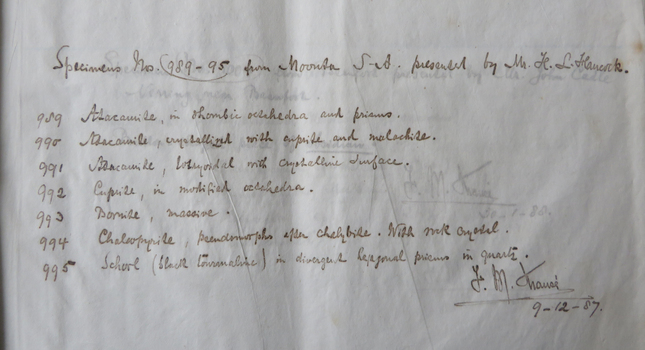 Specimens Nos. 989-95 from Moonta S-A. presented by Mr. H. L. Hancock.
989 Atacamite, in rhombic octohedra and prisms.
990 Atacamite, crystallized with cuprite and malachite.
991 Atacamite, botryoidal with crystalline surface.
992 Cuprite, in modified octohedra.
993 Bornite, massive.
994 Chalcopyrite, pseudomorphs after chalybite. With rock crystal.
995 Schorl (black tourmaline) in divergent hexagonal prisms in quartz.
F. M. Krausé
9-12-87.